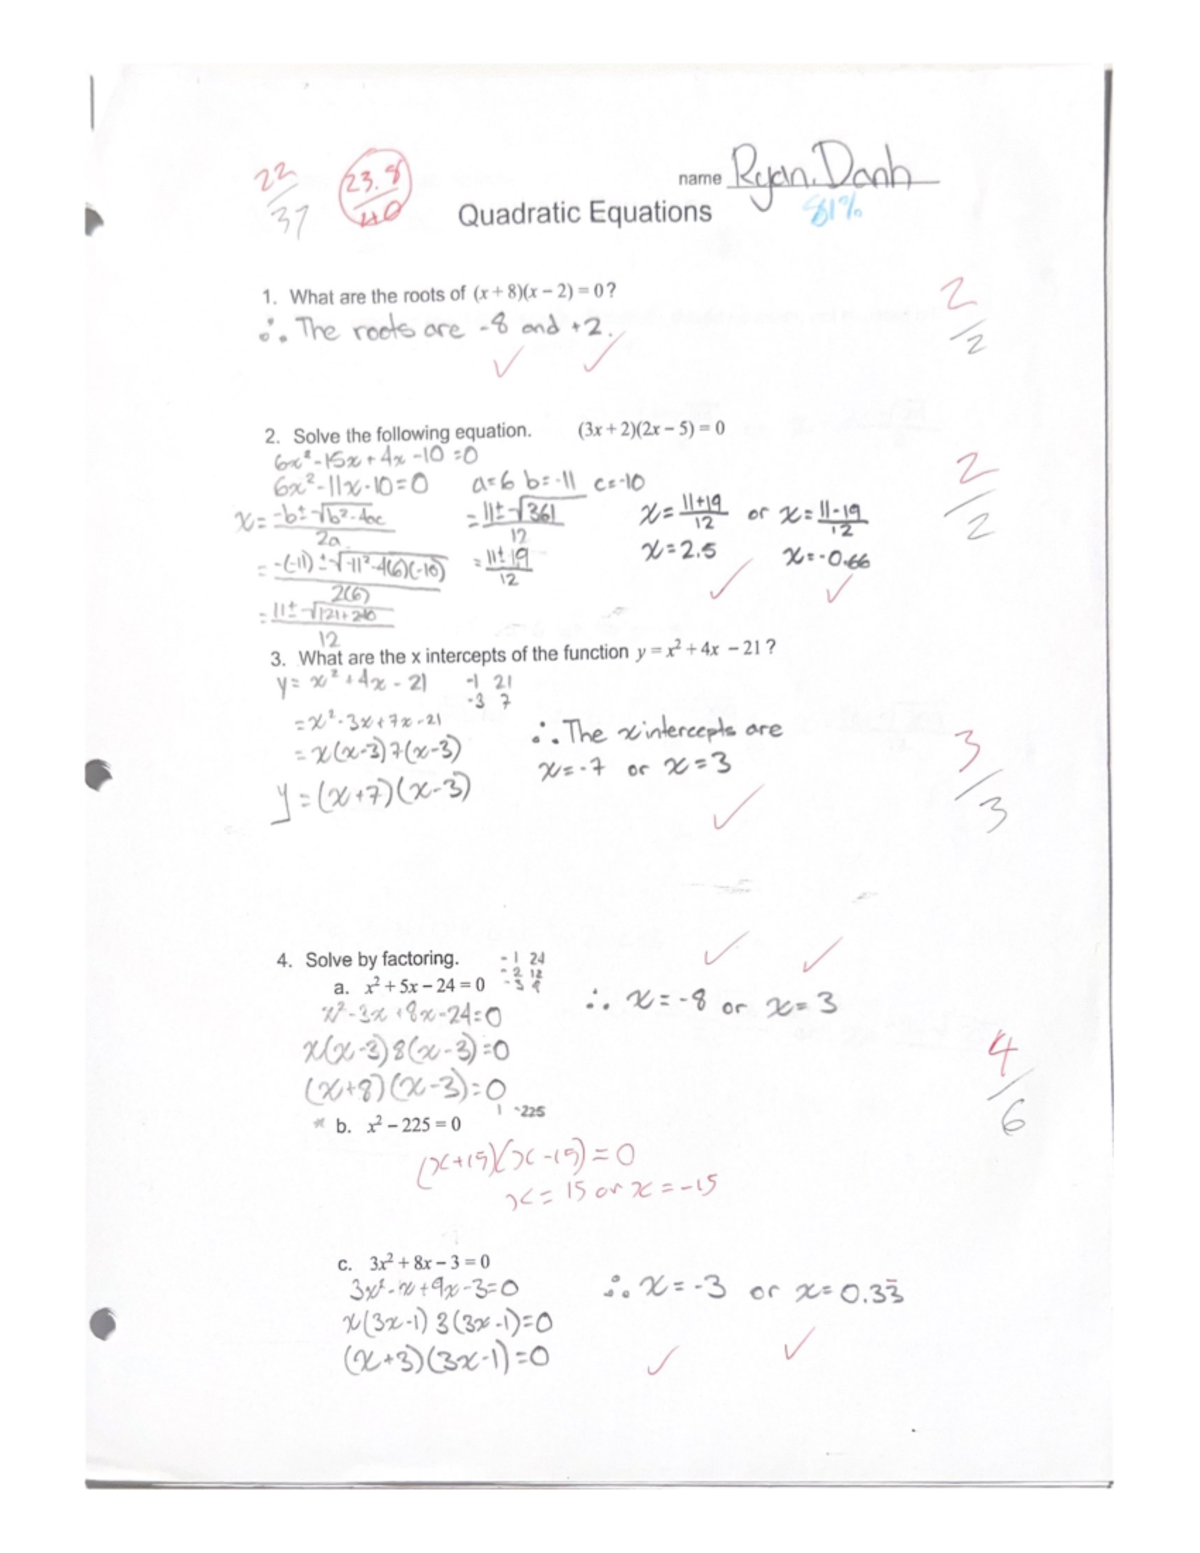 22/37 23.8/40 name Ryan.Danh
Quadratic Equations 81%
1. What are the roots of (x + 8)(x − 2) = 0?
∴ The roots are -8 and +2.
2/2
2. Solve the following equation. (3x + 2)(2x − 5) = 0
6x² -15x + 4x -10 = 0
6x² - 11x - 10 = 0 a=6 b=-11 c=-10
2/2
x = -b ± √b²-4ac / 2a
= -(-11) ± √-11²-4(6)(-10) / 2(6)
= 11 ± √121+240 / 12
= 11 ± √361 / 12
= 11 ± 19 / 12
x = 11+19 / 12 or x = 11-19 / 12
x = 2.5 x = -0.66
3. What are the x intercepts of the function y = x² + 4x − 21?
y = x² + 4x - 21 -1 21
-3 7
= x² - 3x + 7x - 21
= x(x-3)7(x-3)
y = (x+7)(x-3)
∴ The x intercepts are
x = -7 or x = 3
3/3
4. Solve by factoring. -1 24
-2 12
a. x² + 5x − 24 = 0 -3 8
x² - 3x + 8x - 24 = 0
x(x-3)8(x-3) = 0
(x+8)(x-3) = 0
∴ x = -8 or x = 3
4/6
1 -225
* b. x² − 225 = 0
(x+15)(x-15) = 0
x = 15 or x = -15
c. 3x² + 8x − 3 = 0
3x² - x + 9x - 3 = 0
x(3x-1)3(3x-1) = 0
(x+3)(3x-1) = 0
∴ x = -3 or x = 0.33̅